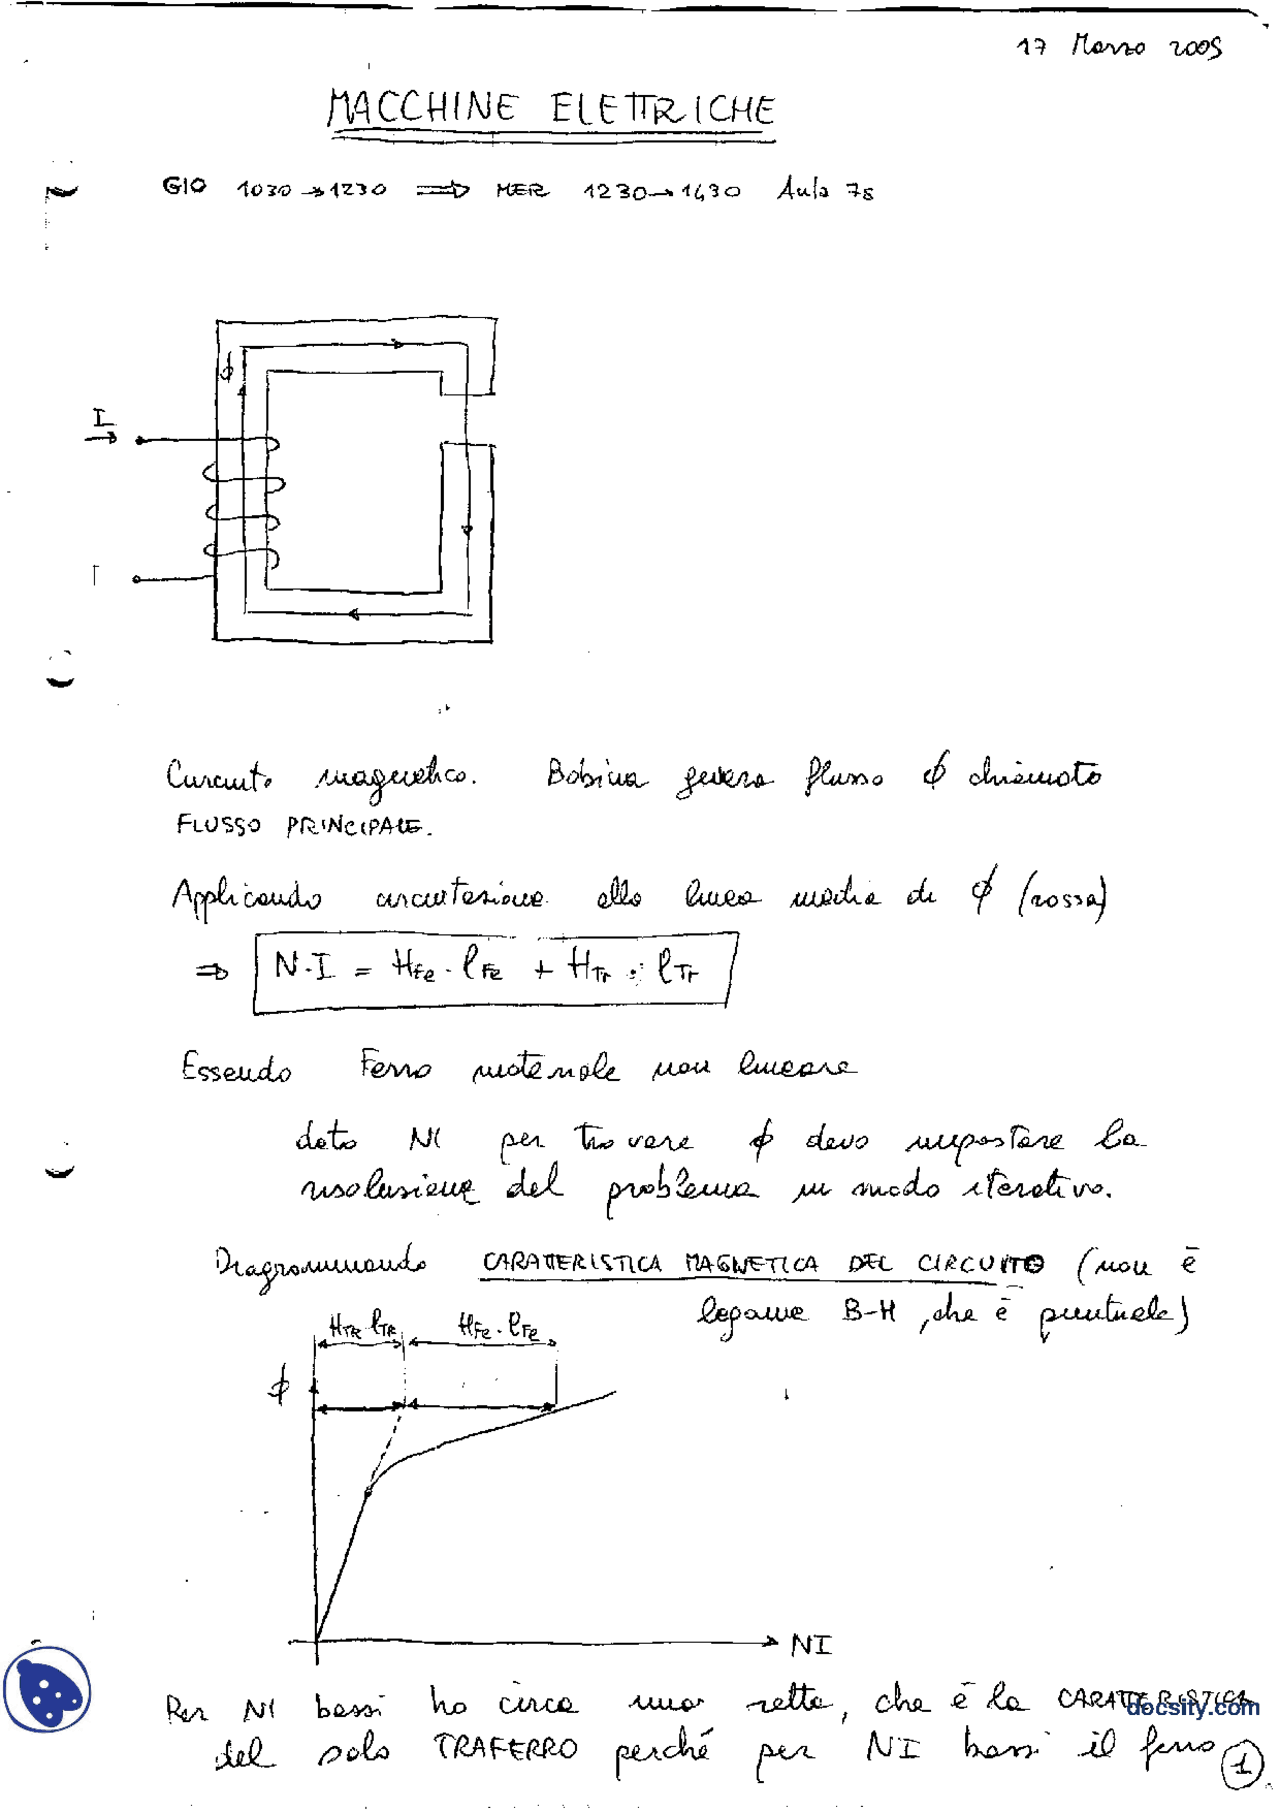 17 Marzo 2005
MACCHINE ELETTRICHE
GIO 1030 → 1230 ⇒ MER 1230 → 1430 Aula 7s
ϕ
I
Circuito magnetico. Bobina genera flusso ϕ chiamato
FLUSSO PRINCIPALE.
Applicando circuitazione alla linea media di ϕ (rossa)
⇒ N·I = HFe · lFe + HTr · lTr
Essendo Ferro materiale non lineare
dato NI per trovare ϕ devo impostare la
risoluzione del problema in modo iterativo.
Diagrammando CARATTERISTICA MAGNETICA DEL CIRCUITO (non è
legame B-H, che è puntuale)
HTR lTR HFe · lFe
ϕ
NI
Per NI bassi ho circa una retta, che è la CARATTERISTICA
docsity.com
del solo TRAFERRO perché per NI bassi il ferro
1